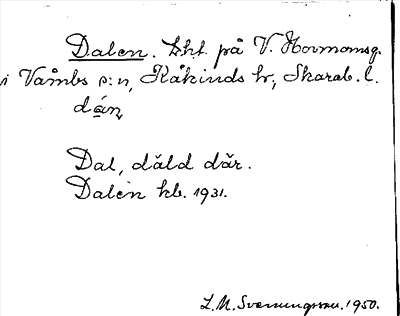 Dalen. lht. på V. Hovmansg.
i Våmbs s:n, Kåkinds hr, Skarab. l.
dán
Dal, däld där.
Dalen kb. 1931.
L. M. Svenungsson. 1950.